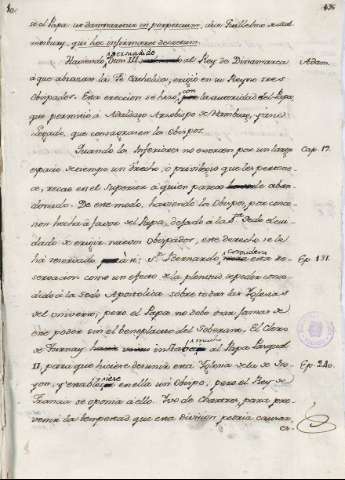 se el Papa: ut damnaremus in perpetuum, dice Guillelmo de Mal-
mesbury, que hoc infirmarent decretum.
Haviendo persuadido Othon III al Rey de Dinamarca Adam.
a que abrazara la Fe Catholica, erigió en su Reyno tres
Obispados. Esta ereccion se hizo con la autoridad del Papa,
que permitió a Arzobispo de Hamburg, y a su
Legado, que consagraran los Obispos.
Quando los Inferiores no exercen por un largo Cap. 17.
espacio de tiempo un derecho, ó privilegio que les pertene-
ce, recae en el Superior a quien parece haverle aban-
donado. De este modo, haviendo los Obispos, por conce-
sion hecha á favor del Papa, dejado a la Sta. Sede el cui-
dado de erigir nuevos Obispados, este derecho se le
ha reservado. Sn. Bernardo considera esta re- Ep. 131.
servacion como un efecto de la plenitud de poder conce-
dido á la Sede Apostolica sobre todas las Iglesias
del universo; pero el Papa no debe usar jamas de
este poder sin el beneplacito del Soberano. El Clero
de Turnay instó al Papa Pasqual
II, para que hiciere desunir esta Iglesia de la de No- Ep. 240.
yon, y estableciere en ella un Obispo, pero el Rey de
Francia se oponia a ello. Ivo de Chartres, para pre-
venir la tempestad que esta division podria causar,
es-